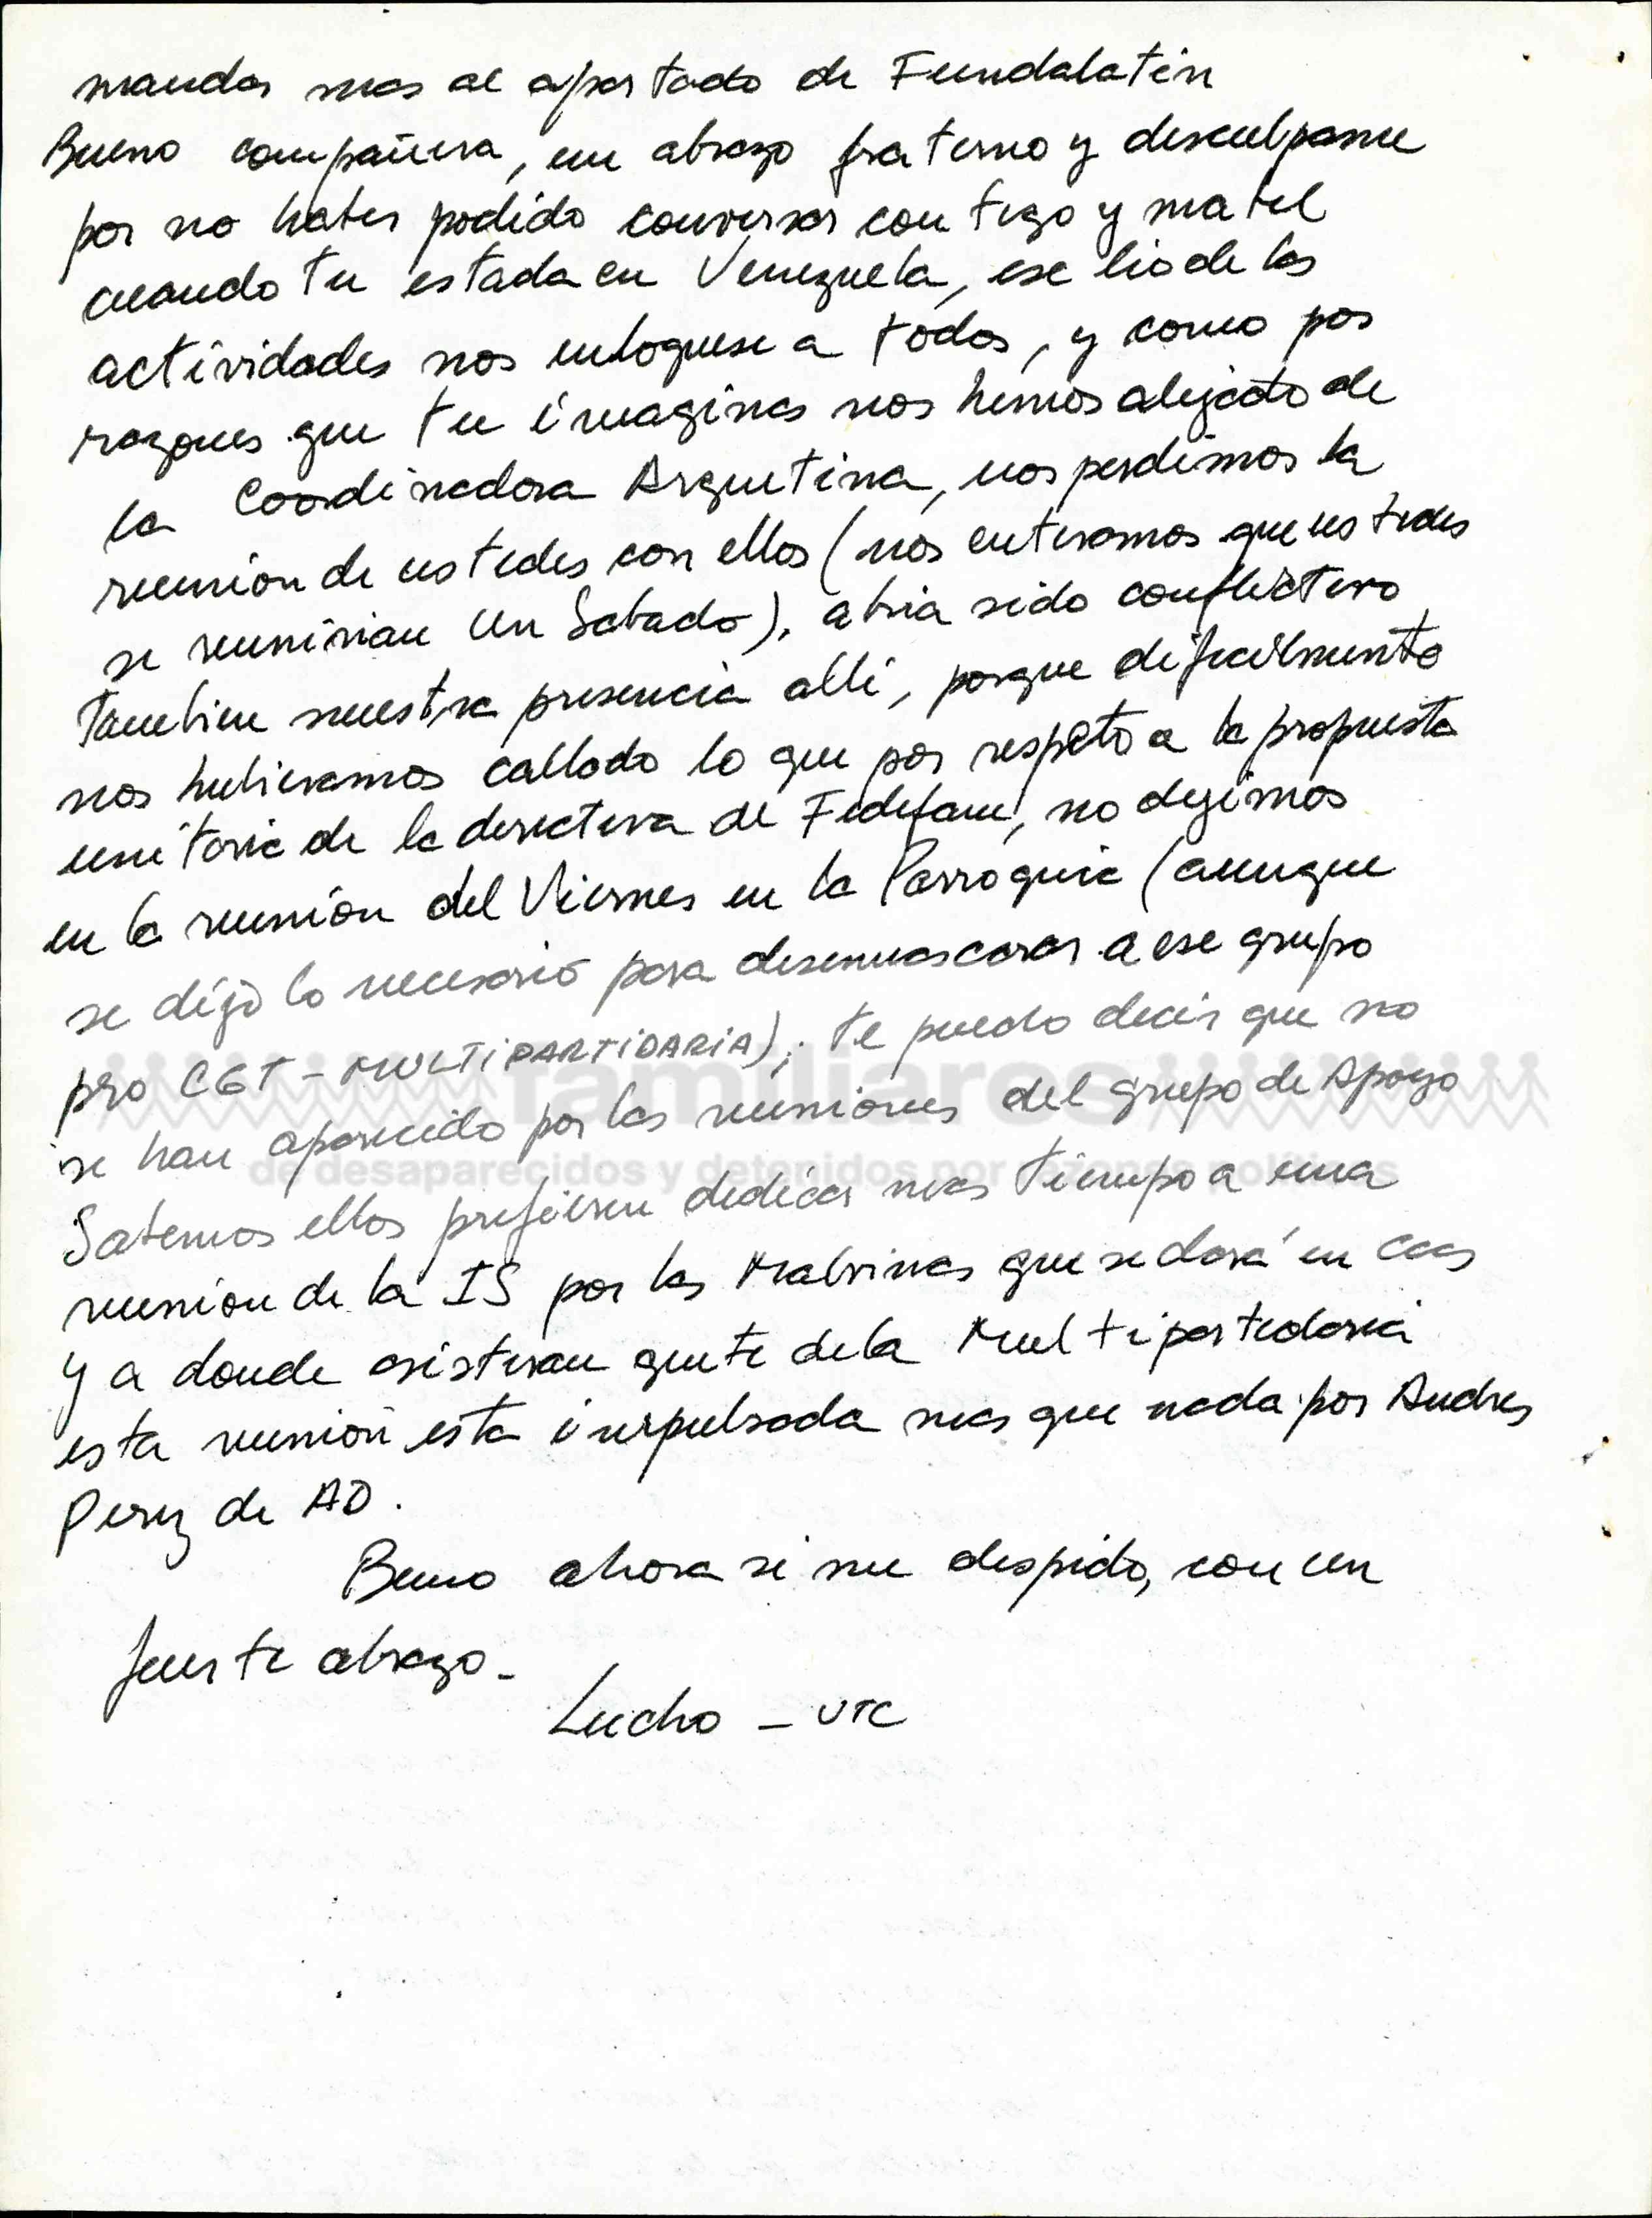 mandar mas al apartado de Fundalatin
Bueno compañera, un abrazo fraterno y disculpame
por no haber podido conversar contigo y mabel
cuando tu estada en Venezuela, ese lio de las
actividades nos enloquese a todos, y como por
razones que tu imaginas nos hemos alejado de
la Coordinadora Argentina, nos perdimos la
reunion de ustedes con ellos (nos enteramos que ustedes
se reunirian un Sabado), abria sido conflictivo
Tambien nuestra presencia alli, porque dificilmente
nos hubieramos callado lo que por respeto a la propuesta
unitaria de la directiva de Fedefam, no dejimos
en la reunión del Viernes en la Parroquia (aunque
se dijo lo necesario para desenmascarar a ese grupo
pro CGT - MULTIPARTIDARIA); te puedo decir que no
se han aparecido por las reuniones del grupo de Apoyo
Sabemos ellos prefieren dedicar mas tiempo a una
reunion de la IS por las Malvinas que se dará en Ccs
y a donde asistiran gente de la Multipartidaria
esta reunion esta impulsada mas que nada por Andres
Perez de AD.
Bueno ahora si me despido, con un
fuerte abrazo-
Lucho - UTC
familiares
de desaparecidos y detenidos por razones políticas